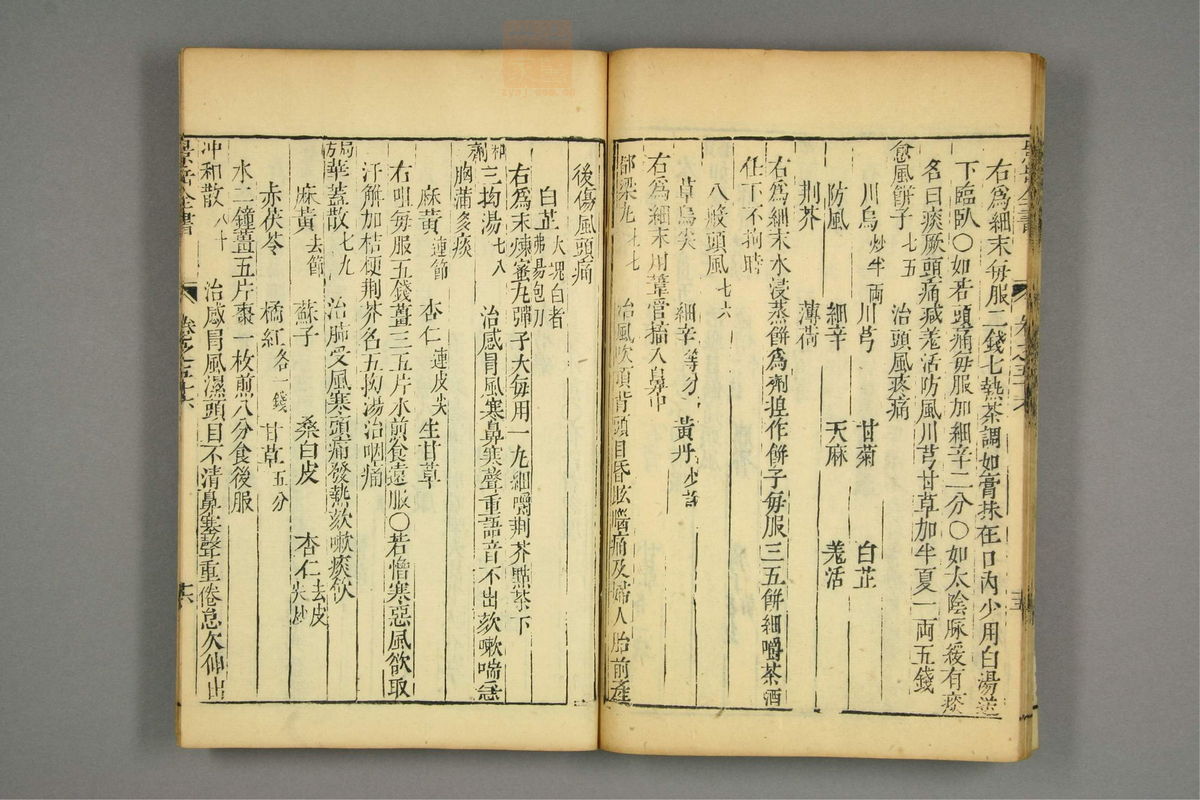 右爲細末每服二錢七熱茶調如膏抹在口內少用白湯送
下臨臥〇如若頭痛每服加細辛二分〇如太陰脉緩有痰
名曰痰厥頭痛減羗活防風川芎甘草加半夏一両五錢
愈風餅子 七五 治頭風疼痛
川烏 炒半両 川芎 甘菊 白芷
防風 細辛 天麻 羗活
荆芥 薄荷
右爲細末水浸蒸餅爲劑揑作餅子每服三五餅細嚼茶酒
任下不拘時
八般頭風 七六
草烏尖 細辛 等分 黃丹 少許
右爲細末用葦管搐入鼻中
都梁丸 七七 治風吹項背頭目昏眩腦痛及婦人胎前產
後傷風頭痛
白芷 大塊白者沸湯泡
右爲末煉蜜丸彈子大每用一丸細嚼荆芥點茶下
和劑三拗湯 七八 治感冒風寒鼻塞聲重語音不出欬嗽喘急
胸滿多痰
麻黃 連節 杏仁 連皮尖 生甘草
右咀每服五錢薑三五片水煎食遠服〇若憎寒惡風欲取
汗解加桔梗荆芥名五拗湯治咽痛
局方華蓋散 七九 治肺受風寒頭痛發熱欬嗽痰飲
麻黃 去節 蘇子 桑白皮 杏仁 去皮尖炒
赤茯苓 橘紅 各一錢 甘草 五分
水二鐘薑五片棗一枚煎八分食後服
冲和散 八十 治感冒風濕頭目不清鼻塞聲重倦怠欠伸出
景岳全書